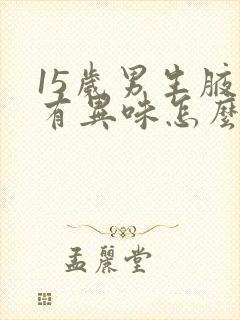 15歲男生腋
有異味怎麼
孟麗堂